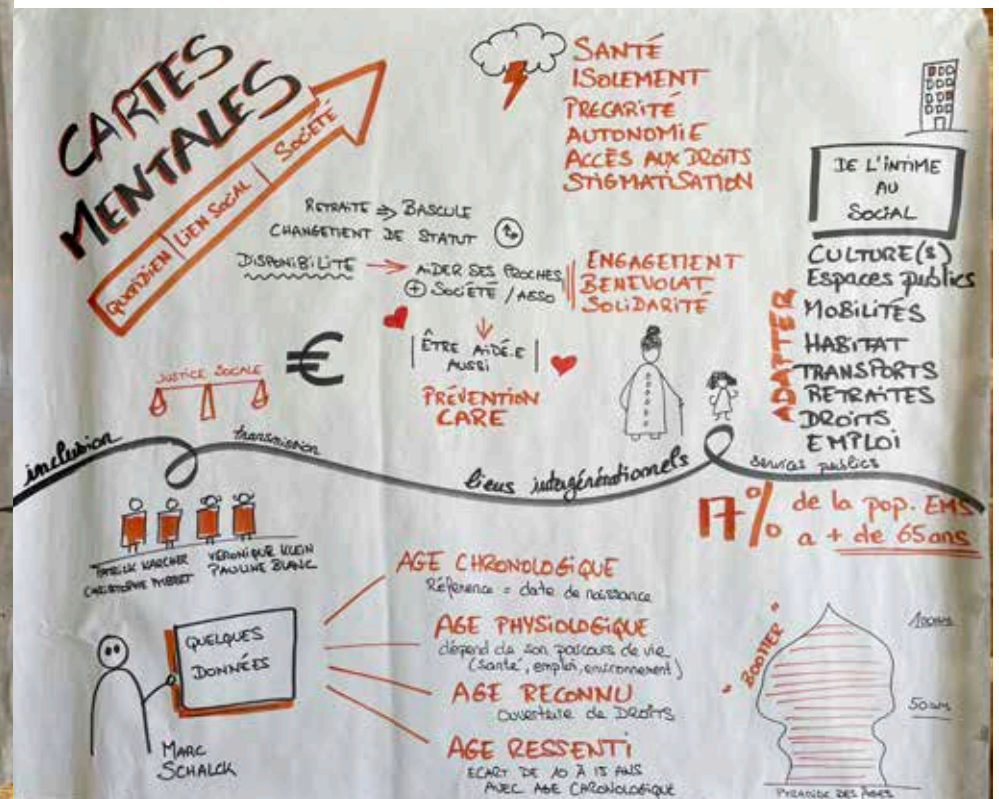 CARTES
MENTALES
QUOTIDIEN | LIEN SOCIAL | SOCIÉTÉ
SANTÉ
ISOLEMENT
PRÉCARITÉ
AUTONOMIE
ACCÈS AUX DROITS
STIGMATISATION
RETRAITE => BASCULE
CHANGEMENT DE STATUT
DISPONIBILITÉ → AIDER SES PROCHES
+ SOCIÉTÉ / ASSO
ENGAGEMENT
BENEVOLAT
SOLIDARITÉ
ÊTRE AIDÉ.E
AUSSI
PRÉVENTION
CARE
DE L'INTIME
AU
SOCIAL
ADAPTER
CULTURE(S)
Espaces publics
MOBILITÉS
HABITAT
TRANSPORTS
RETRAITES
DROITS
EMPLOI
JUSTICE SOCIALE
€
inclusion
transmission
liens intergénérationnels
services publics
17% de la pop. EMS
a + de 65 ans
KARCHER
VÉRONIQUE KLEIN
CHRISTOPHE
PAULINE BLANC
QUELQUES
DONNÉES
MARC
SCHALCK
AGE CHRONOLOGIQUE
Référence = date de naissance
AGE PHYSIOLOGIQUE
dépend de son parcours de vie
(santé, emploi, environnement)
AGE RECONNU
Ouverture de DROITS
AGE RESSENTI
ECART DE 10 À 15 ANS
AVEC AGE CHRONOLOGIQUE
100 ans
50 ans
PYRAMIDE DES ÂGES